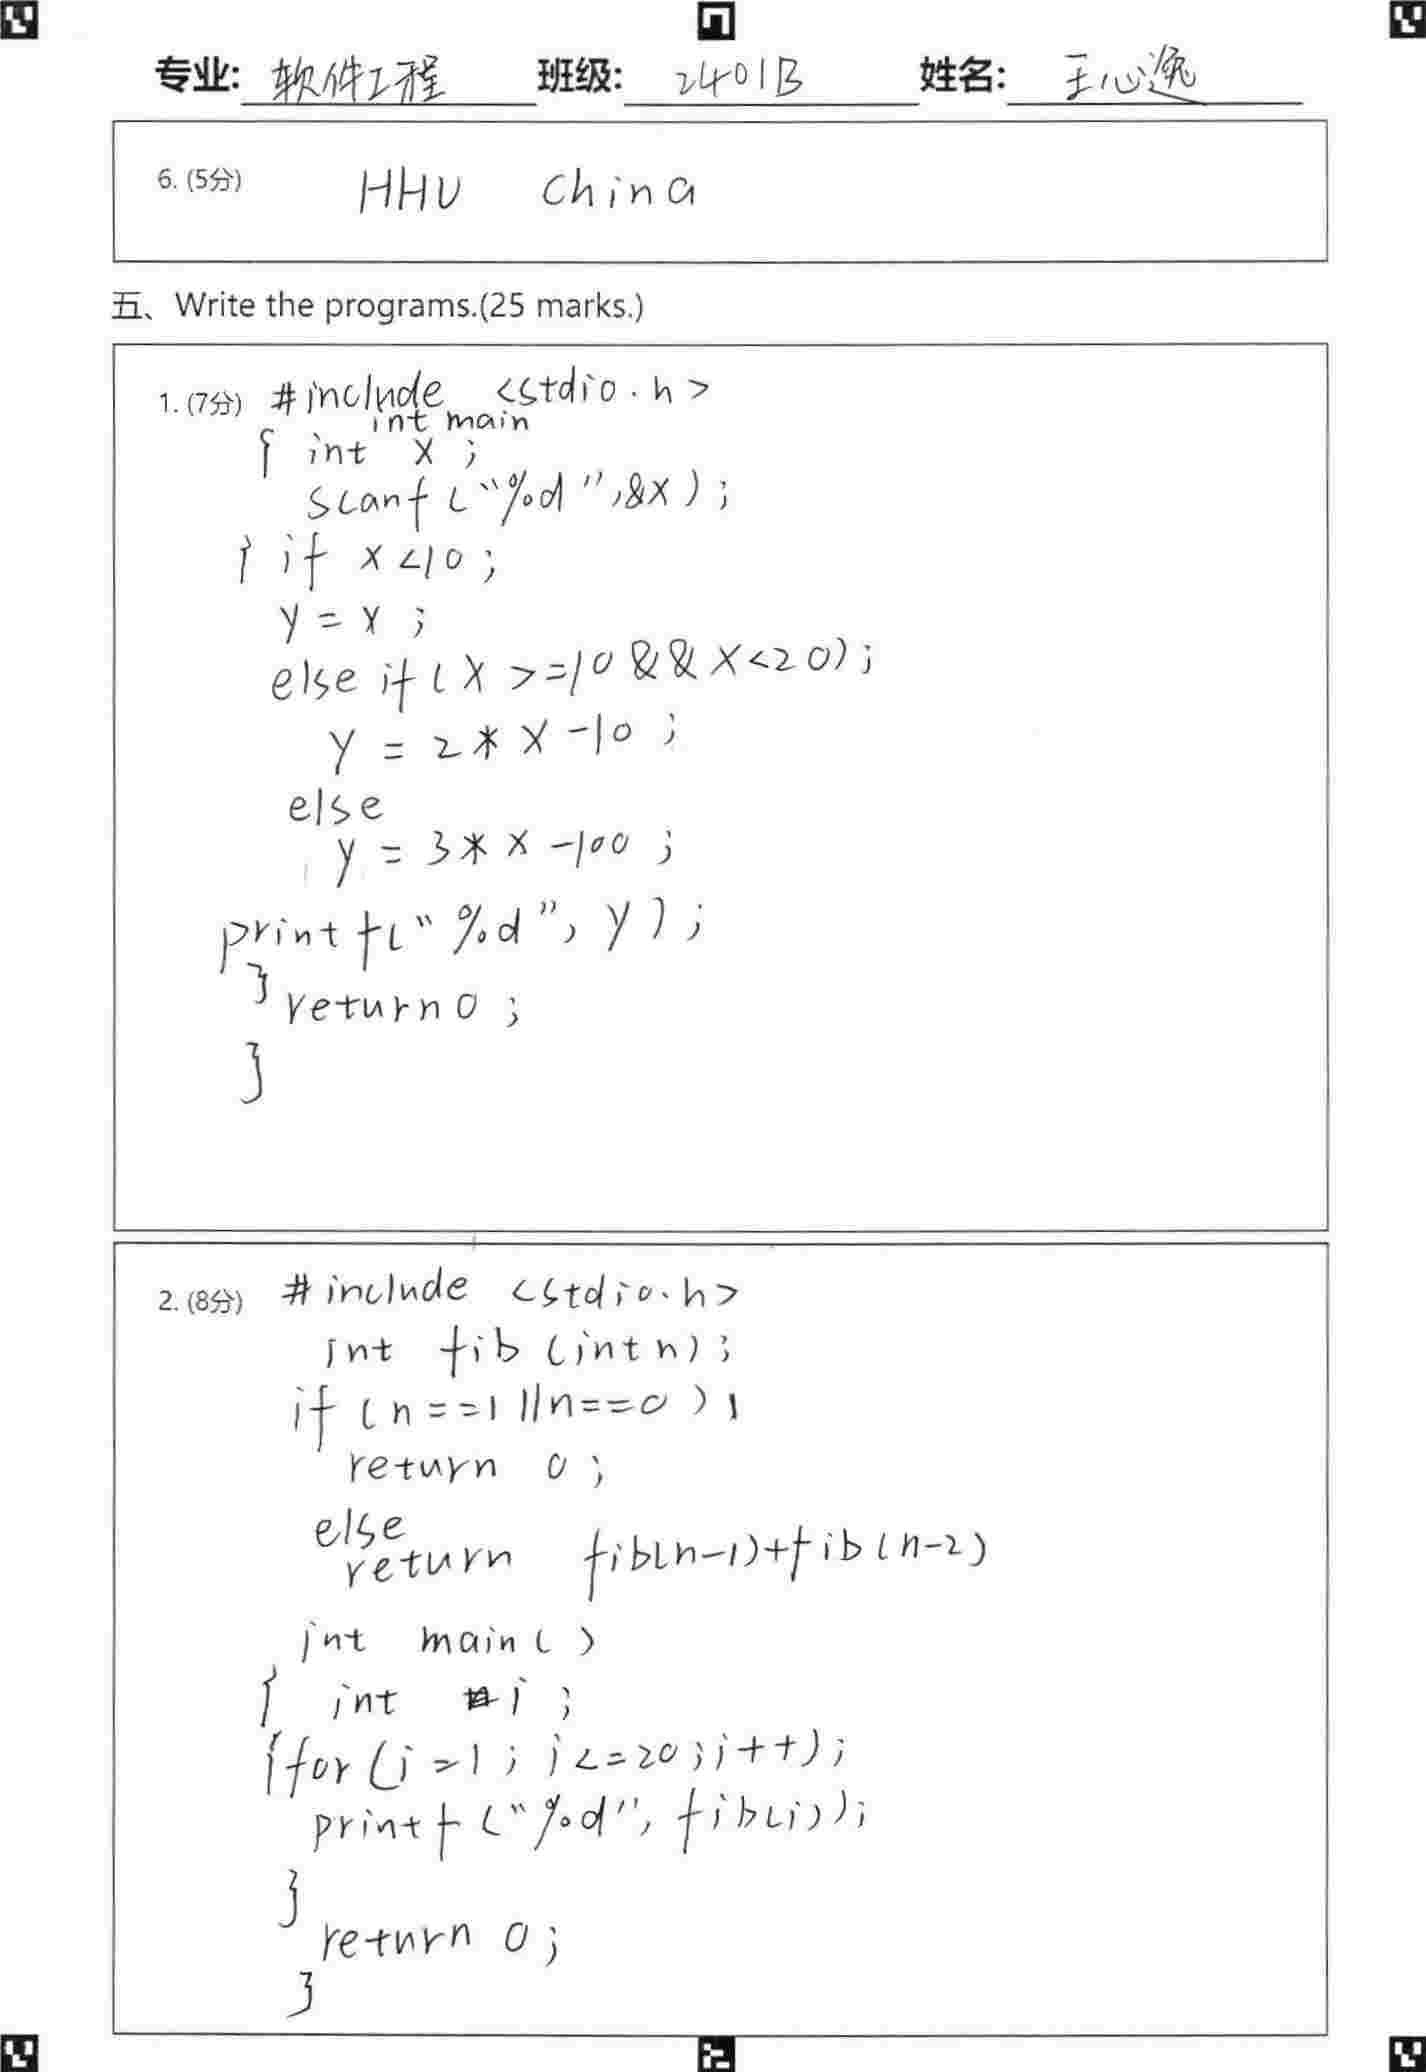 专业: 软件工程 班级: 2401B 姓名: 王心逸
6. (5分) HHU China
五、Write the programs.(25 marks.)
1. (7分) #include <stdio.h>
int main
{ int x ;
scanf ("%d",&x) ;
{ if x<10 ;
y = x ;
else if (x >=10 && x<20) ;
y = 2* x -10 ;
else
y = 3* x -100 ;
printf("%d", y ) ;
}
return 0 ;
}
2. (8分) #include <stdio.h>
int fib (int n) ;
if (n==1||n==0 ) ;
return 0 ;
else
return fib(n-1)+fib(n-2)
int main ( )
{ int i ;
{for (i =1 ; i<=20 ; i++) ;
printf ("%d", fib(i)) ;
}
return 0 ;
}